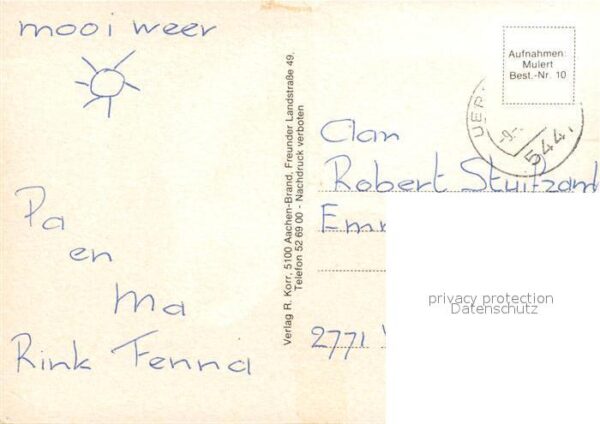 mooi weer
Pa
en
Ma
Rink Fenna
Verlag R. Korr, 5100 Aachen-Brand, Freunder Landstraße 49,
Telefon 52 69 00 - Nachdruck verboten
Aufnahmen:
Mulert
Best.-Nr. 10
544
Aan
Robert
2771
privacy protection
Datenschutz